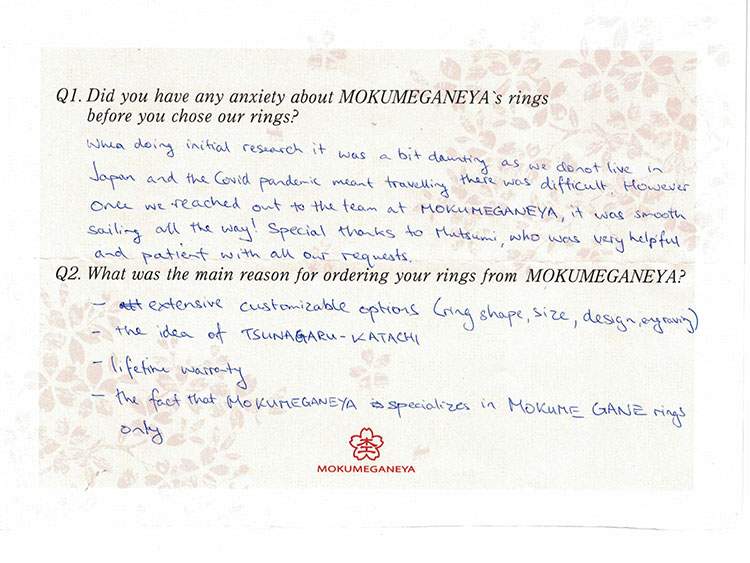 Q1. Did you have any anxiety about MOKUMEGANEYA`s rings
before you chose our rings?
When doing initial research it was a bit daunting as we do not live in
Japan and the Covid pandemic meant travelling there was difficult. However
once we reached out to the team at MOKUMEGANEYA, it was smooth
sailing all the way! Special thanks to Mutsumi, who was very helpful
and patient with all our requests.
Q2. What was the main reason for ordering your rings from MOKUMEGANEYA?
- extensive customizable options (ring shape, size, design, engraving)
- the idea of TSUNAGARU-KATACHI
- lifetime warranty
- the fact that MOKUMEGANEYA specializes in MOKUME GANE rings
only
MOKUMEGANEYA